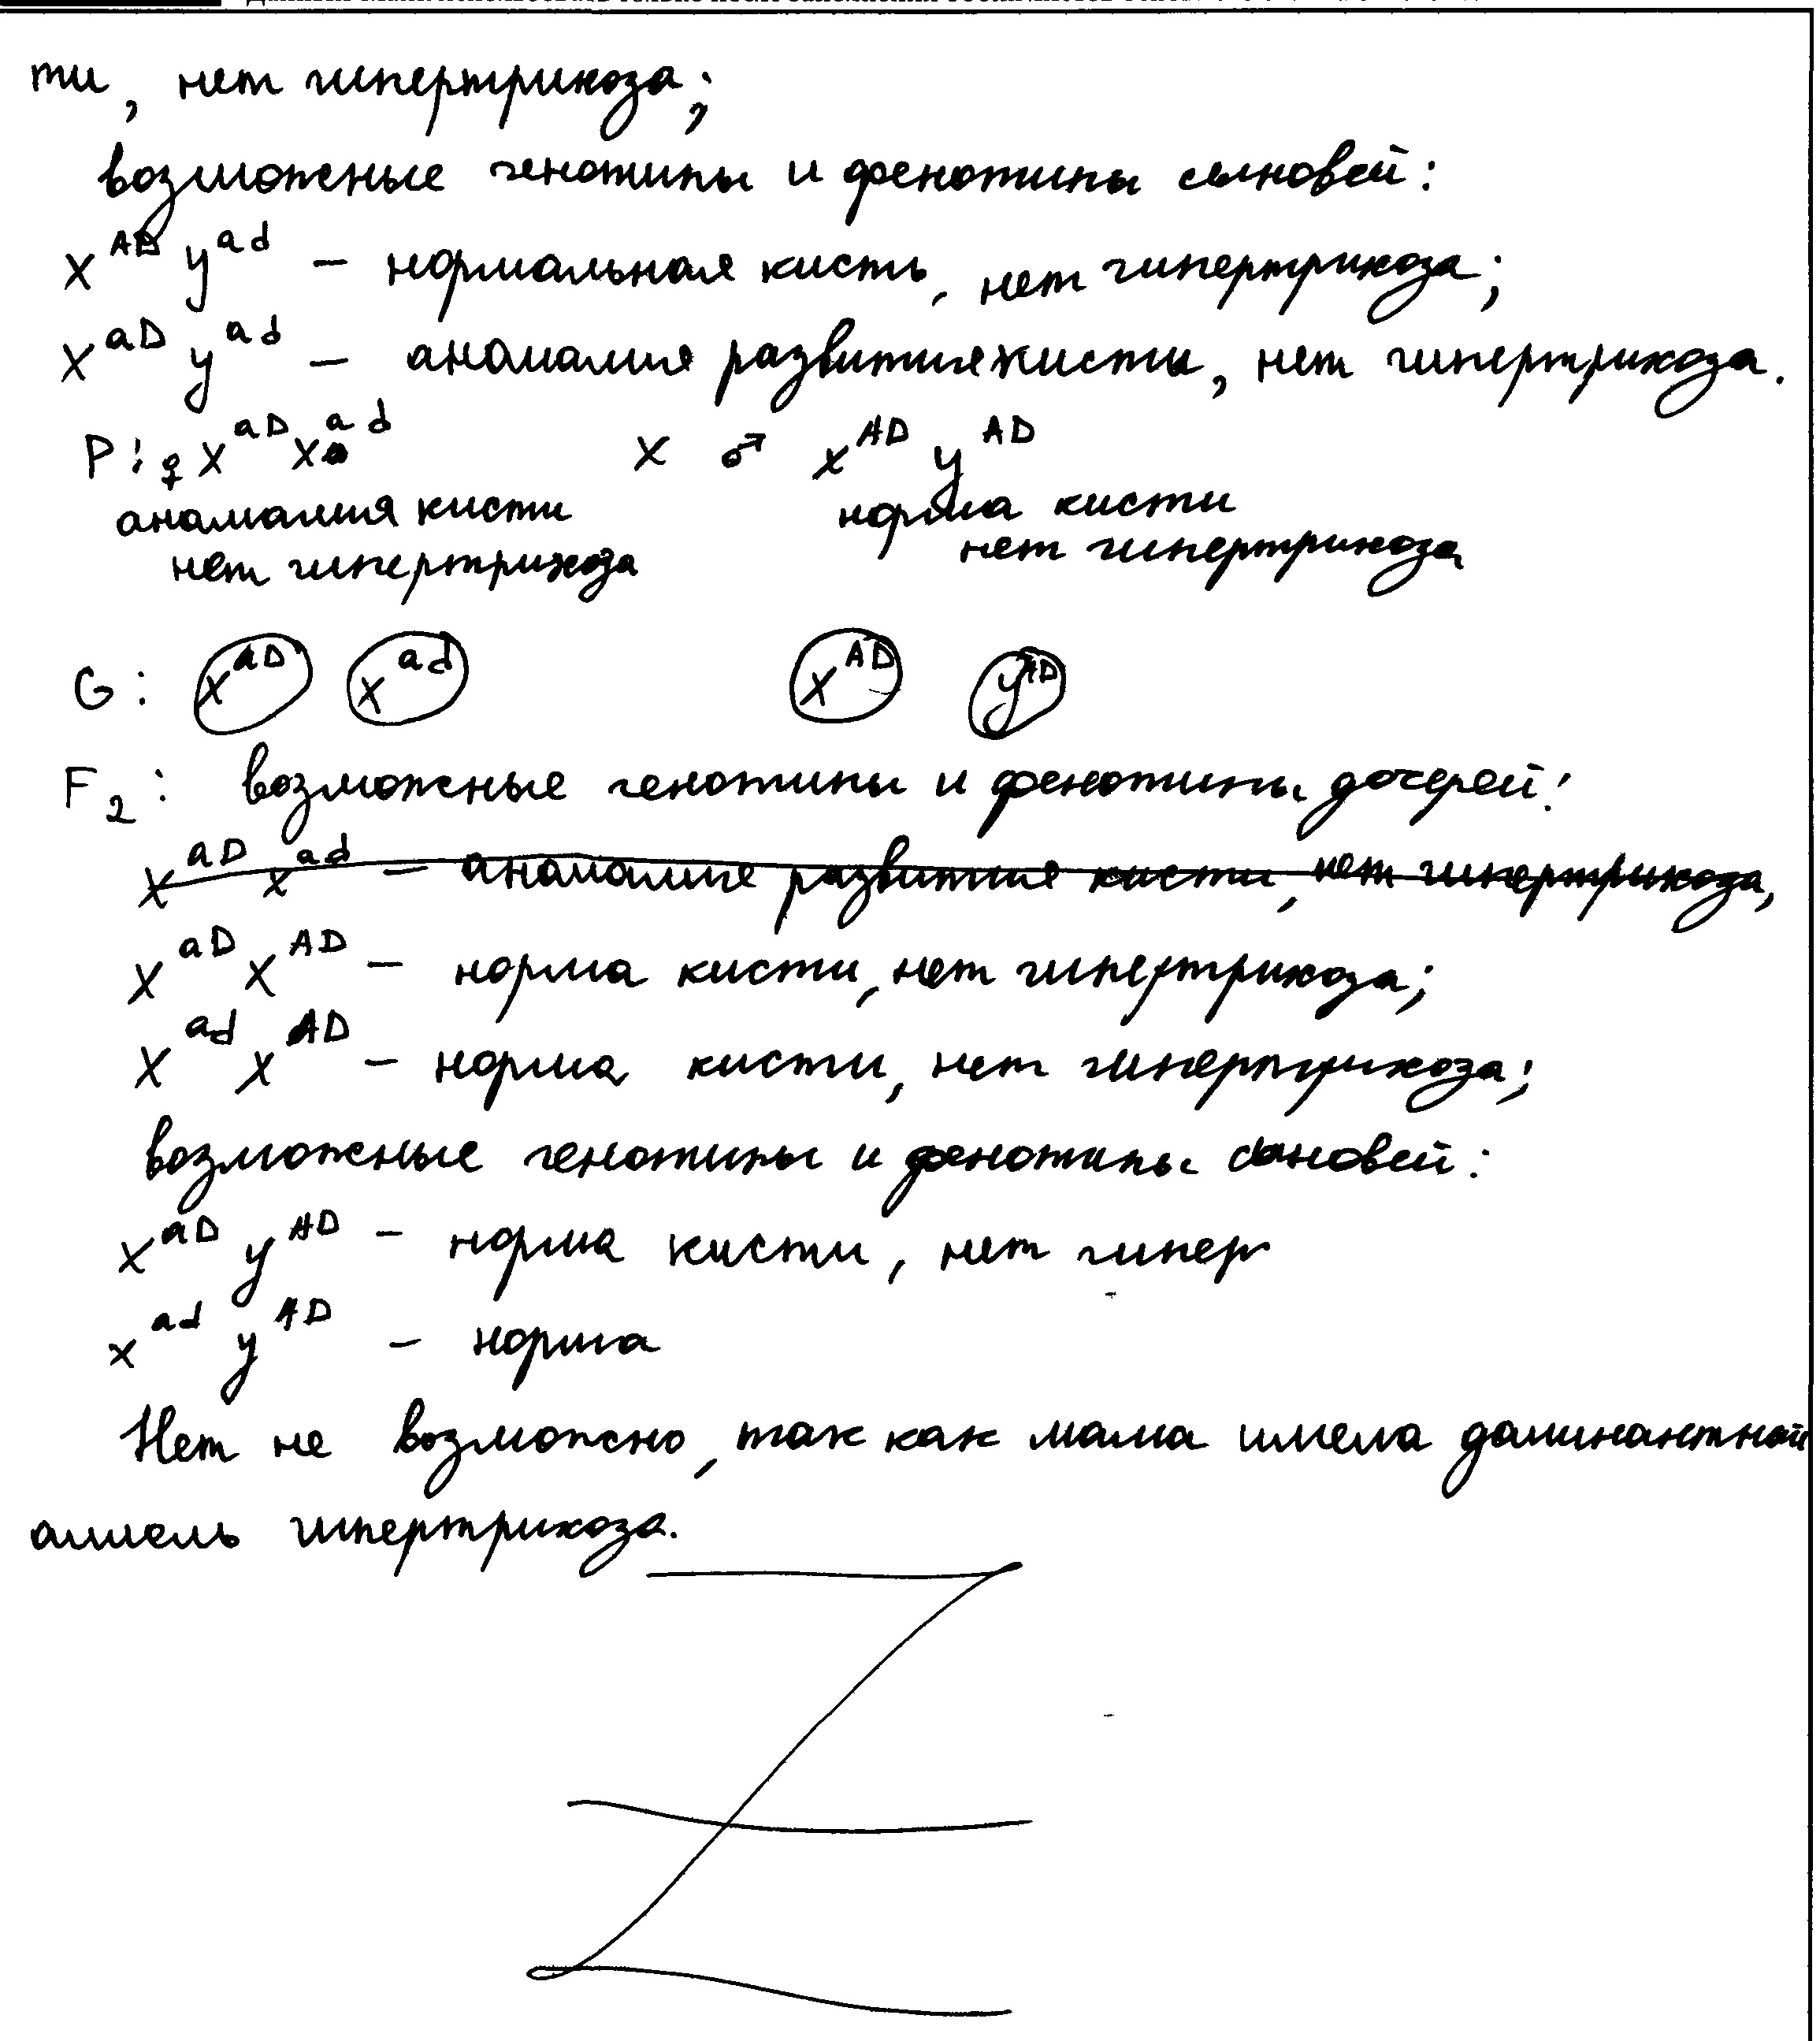 ти, нет гипертрихоза;
возможные генотипы и фенотипы сыновей:
X^AD y^ad – нормальная кисть, нет гипертрихоза;
X^aD y^ad – аномалия развития кисти, нет гипертрихоза.
P: ♀ X^aD X^ad x ♂ X^AD y^AD
анамалия кисти норма кисти
нет гипертрихоза нет гипертрихоза
G: X^aD X^ad X^AD y^AD
F2: возможные генотипы и фенотипы дочерей:
X^aD X^ad – анамалия развития кисти, нет гипертрихоза,
X^aD X^AD – норма кисти, нет гипертрихоза;
X^ad X^AD – норма кисти, нет гипертрихоза;
возможные генотипы и фенотипы сыновей:
X^aD y^AD – норма кисти, нет гипер
X^ad y^AD – норма
Нет не возможно, так как мама имела доминантной
аллель гипертрихоза.